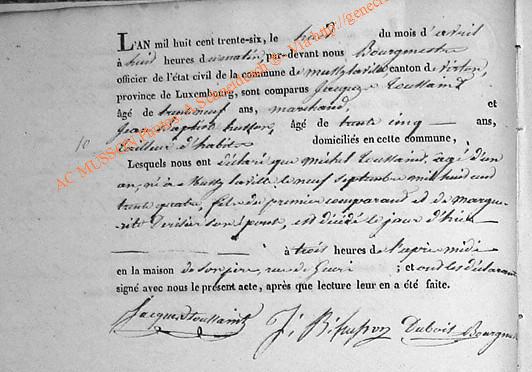 L'AN mil huit cent trente-six, le trois du mois d'avril
à huit heures du matin, par-devant nous Bourgmestre
officier de l'état civil de la commune de mussylaville, canton de virton,
province de Luxembourg, sont comparus Jacques Toussaint
âgé de trenteneuf ans, marchand, et
Jean Baptiste husson, âgé de trente cinq ans,
10 tailleur d'habits domiciliés en cette commune,
Lesquels nous ont déclaré que michel Toussaint, agé d'un
an, né à Mussy laville le neuf septembre mil huit cent
trente quatre, fils du premier comparant et de margue-
rite son épouse, est décédé le jour d'hier
à trois heures de
en la maison de son père, rue de ; et ont les déclarans
signé avec nous le présent acte, après que lecture leur en a été faite.
Jacques toussaint J. B. husson Dubois Bourgm
AC MUSSON Photos A Schneidesch © Via http://genec